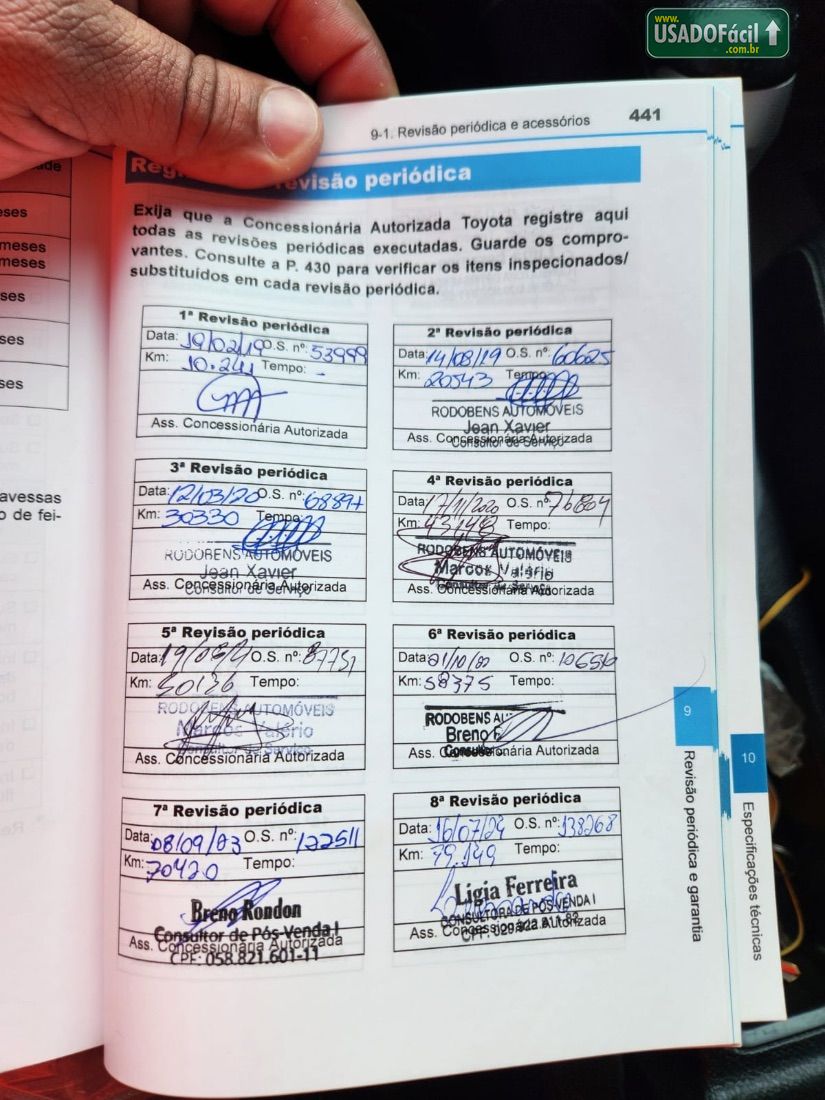 www.
USADOFácil
.com.br
9-1. Revisão periódica e acessórios 441
revisão periódica
Exija que a Concessionária Autorizada Toyota registre aqui
todas as revisões periódicas executadas. Guarde os compro-
vantes. Consulte a P. 430 para verificar os itens inspecionados/
substituídos em cada revisão periódica.
1ª Revisão periódica
Data: 19/02/19 O.S. nº: 53999
Km: 10.241 Tempo: -
Ass. Concessionária Autorizada
2ª Revisão periódica
Data: 14/08/19 O.S. nº: 60625
Km: 20543 Tempo:
RODOBENS AUTOMÓVEIS
Jean Xavier
Consultor de Serviço
Ass. Concessionária Autorizada
3ª Revisão periódica
Data: 12/03/20 O.S. nº:
Km: 30330 Tempo:
RODOBENS AUTOMÓVEIS
Jean Xavier
Consultor de Serviço
Ass. Concessionária Autorizada
4ª Revisão periódica
Data: 17/11/2020 O.S. nº: 76804
Km: 43148 Tempo:
RODOBENS AUTOMÓVEIS
Marcos Valério
Consultor de Serviço
Ass. Concessionária Autorizada
5ª Revisão periódica
Data: O.S. nº: 87751
Km: 50136 Tempo:
RODOBENS AUTOMÓVEIS
Marcos Valério
Consultor de Serviço
Ass. Concessionária Autorizada
6ª Revisão periódica
Data: O.S. nº:
Km: 58375 Tempo:
RODOBENS
Breno
Consultor
Ass. Concessionária Autorizada
7ª Revisão periódica
Data: 08/09/23 O.S. nº: 122511
Km: 70420 Tempo:
Breno Rondon
Consultor de Pós-Venda I
Ass. Concessionária Autorizada
CPF: 058.821.601-11
8ª Revisão periódica
Data: 16/07/24 O.S. nº: 138268
Km: 79.149 Tempo:
Lígia Ferreira
CONSULTORA DE PÓS VENDA I
Ass. Concessionária Autorizada
CPF:
9
Revisão periódica e garantia
10
Especificações técnicas
eses
meses
meses
ses
eses
eses
avessas
o de fei-